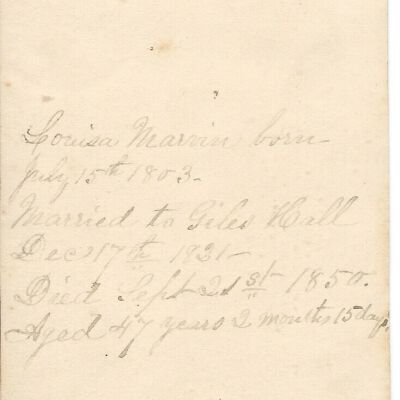 Louisa Marvin born
July 15th 1803-
Married to Giles Hall
Dec 17th 1821-
Died Sept 21st 1850.
Aged 47 years 2 months 15 days.